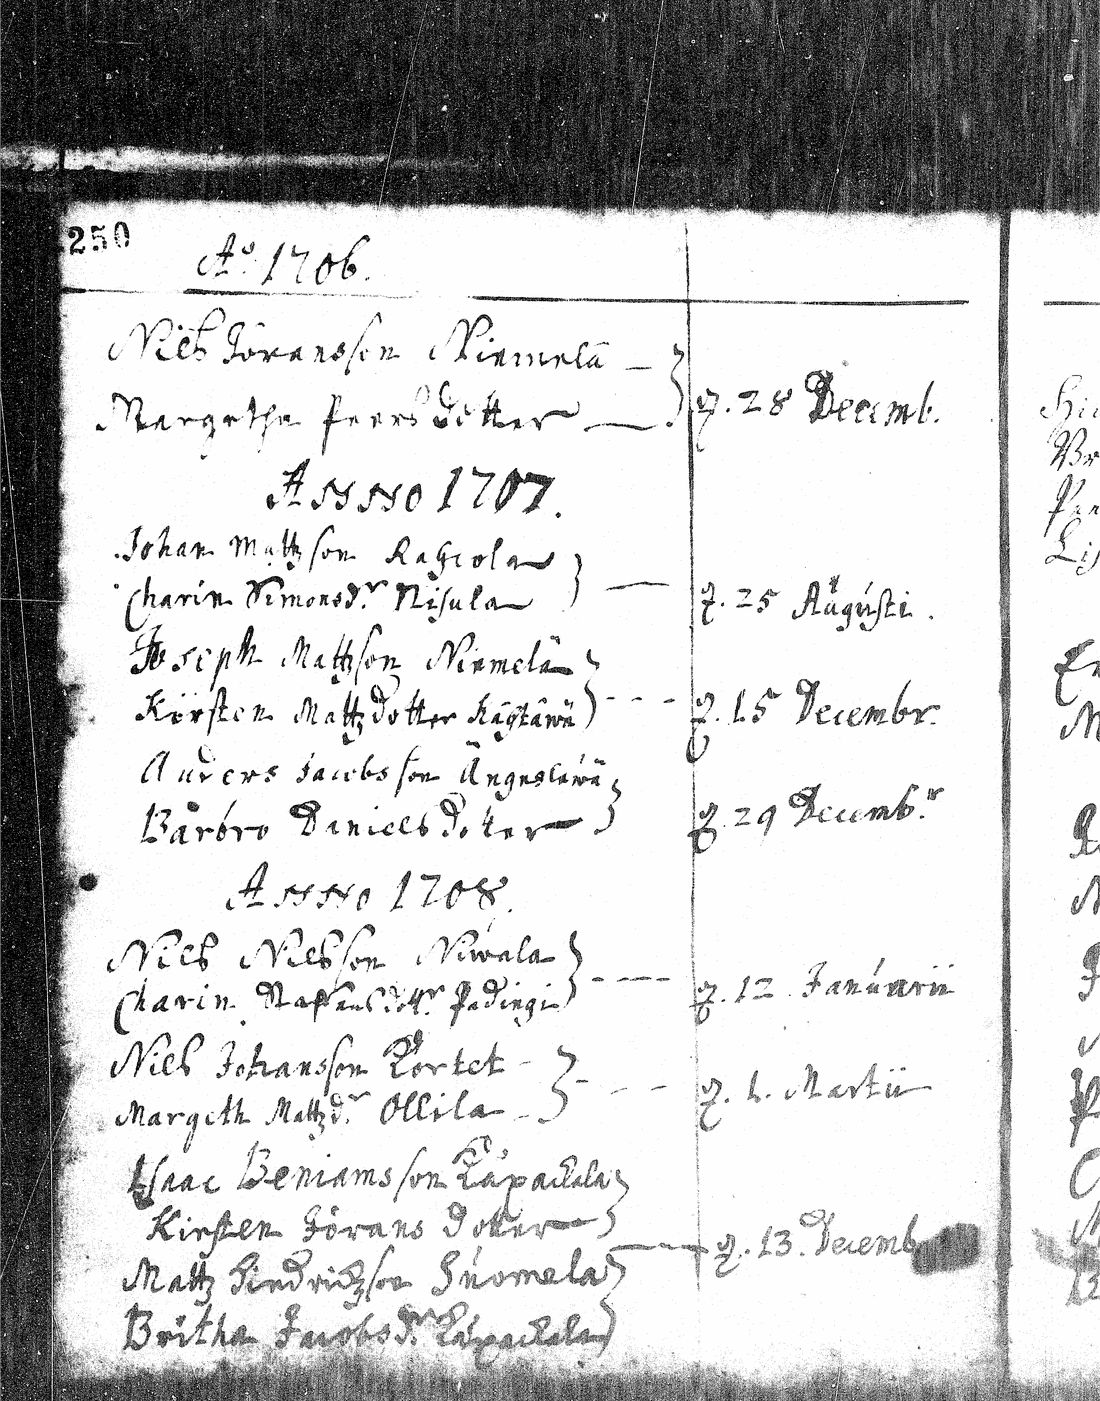 250
Ao. 1706.
Niels Jöransson Niemelä
Margetha Peersdotter } d. 28 Decemb.
Anno 1707.
Johan Mattzson Rahcola
Charin Simonsdr Nisula } d. 25 Augusti.
Joseph Mattzson Niemelä
Kirsten Mattzdotter } d. 15 Decembr.
Anders Jacobsson Ängeslewä
Barbro Danielsdotter } d. 29 Decembr
Anno 1708.
Niels Nielsson Niwala
Charin Staffansdottr Padingi } d. 12 Januarii
Niels Johansson Kortet
Margeth Mattzdr Ollila } d. 1. Martii
Isaac Beniamsson Käpackala
Kirsten Jörans dotter } d. 13. Decemb
Mattz Hindrickzson Huomela
Britha Jacobsdr Käpackala